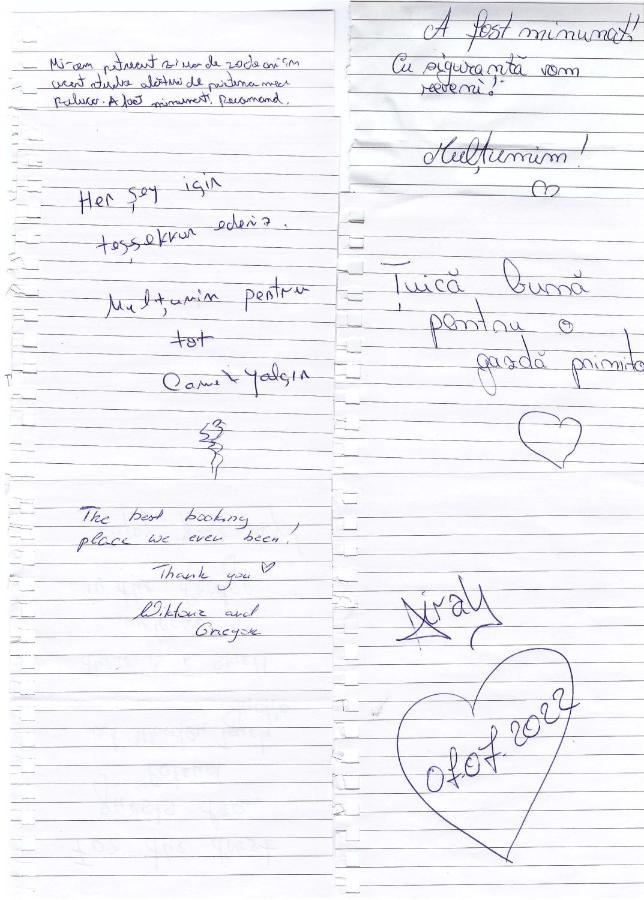 Mi-am petrecut ziua de
acest alături de partenera mea
Raluca. A fost minunat! Recomand.
Her şey için
teşşekkur ederiz.
Mulţumim pentru
tot
Yalçın
The best booking
place we ever been!
Thank you ♡
Wiktoria and
Gregor
A fost minunat!
Cu siguranţă vom
reveni!
Mulţumim!
Ţuică bună
pentru o
gazdă primito
07.07.2022